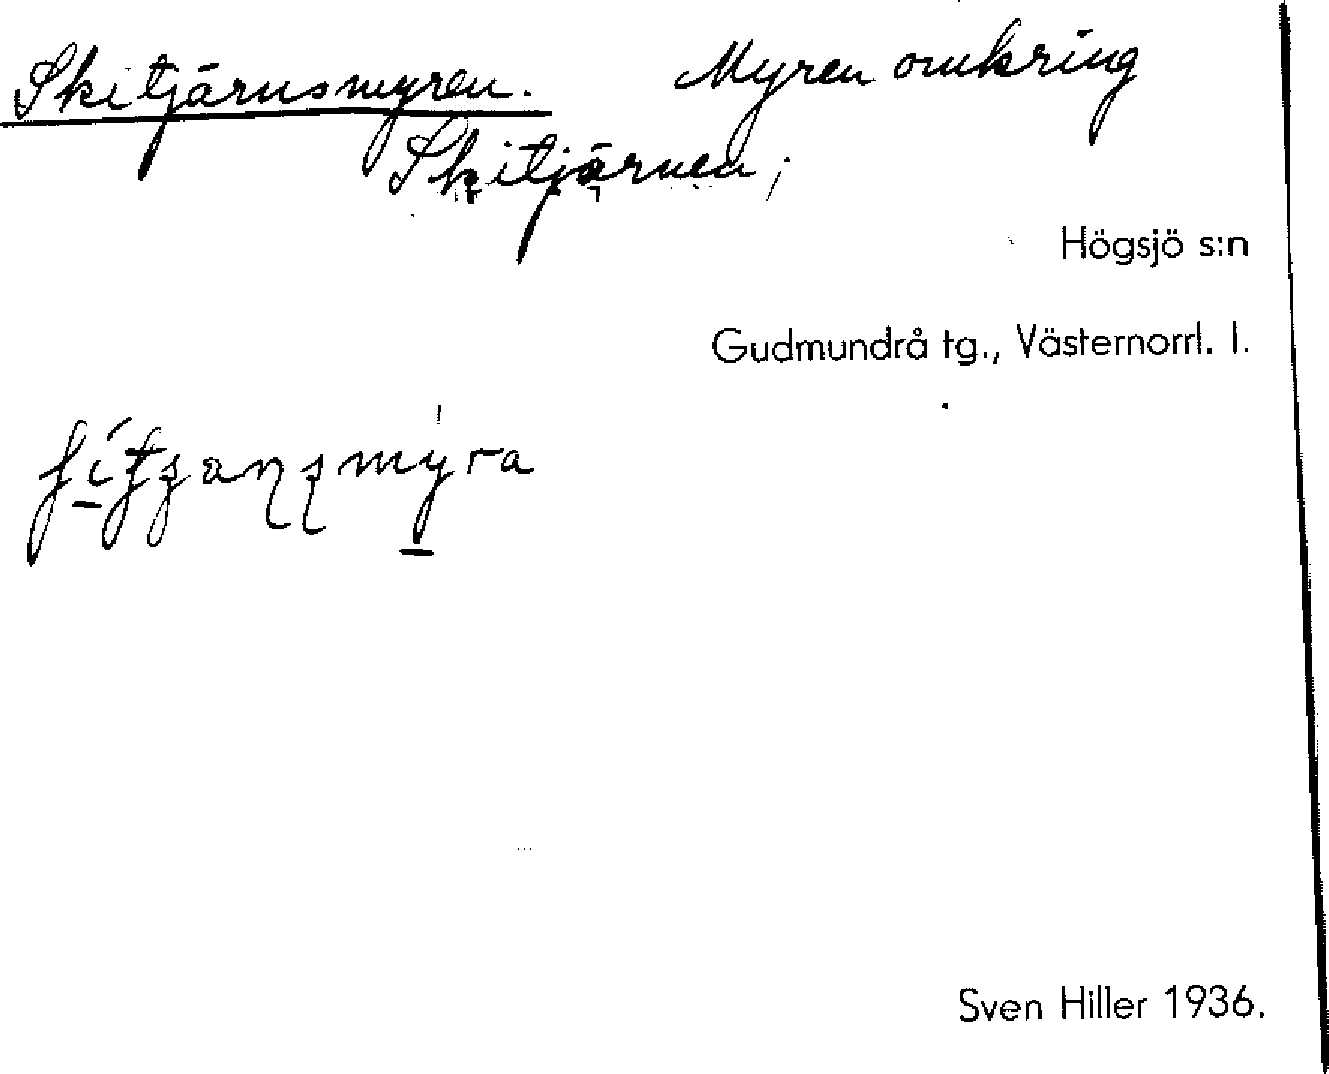 Skitjärnsmyren. Myren omkring
Skitjärnen;
Högsjö s:n
Gudmundrå tg., Västernorrl. l.
Sven Hiller 1936.